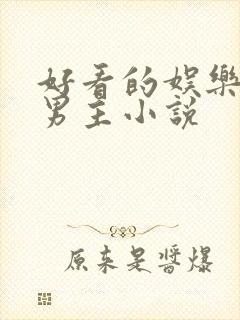 好看的娱樂
男主小說
原来是醬爆